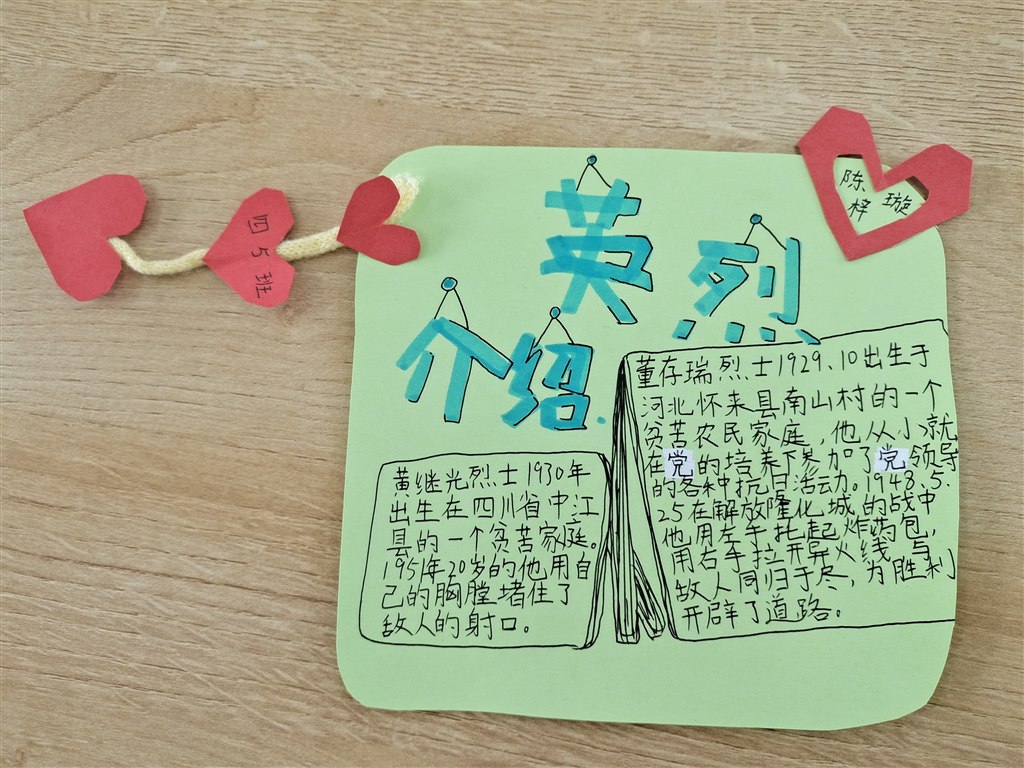 四5班
陈
梓璇
英烈
介绍
黄继光烈士1930年
出生在四川省中江
县的一个贫苦家庭。
1951年20岁的他用自
己的胸膛堵住了
敌人的射口。
董存瑞烈士1929.10出生于
河北怀来县南山村的一个
贫苦农民家庭,他从小就
在党的培养下参加了党领导
的各种抗日活动。1948.5.
25在解放隆化城的战中
他用左手托起炸药包,
用右手拉开导火线与
敌人同归于尽,为胜利
开辟了道路。